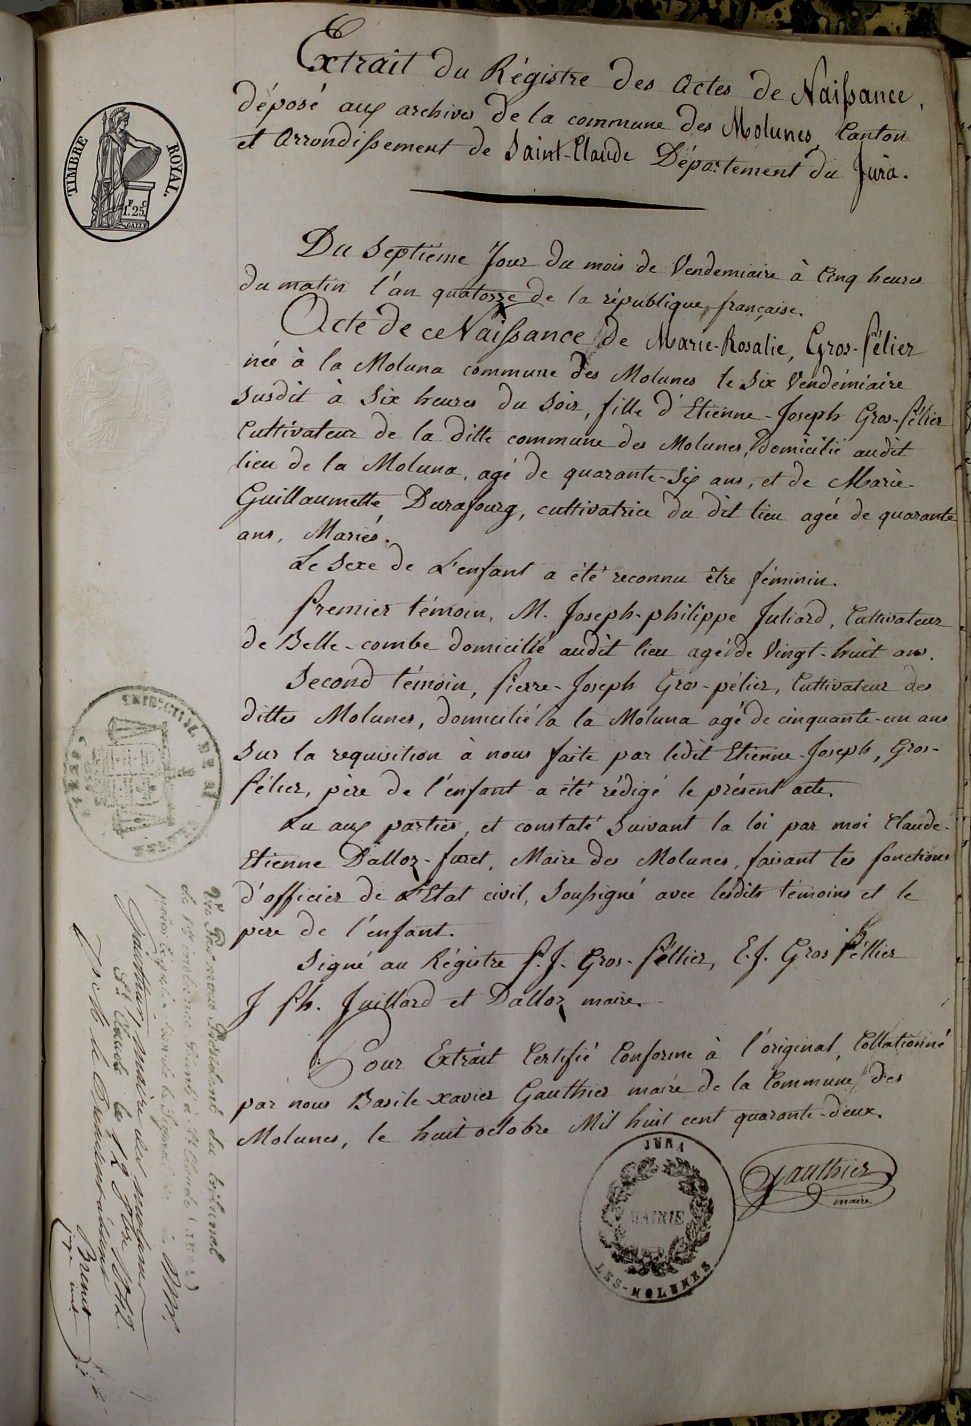 Extrait du Régistre des actes de Naissance,
déposé aux archives de la commune des Molunes, Canton
et Arrondissement de Saint-Claude Département du Jura.
TIMBRE ROYAL.
F. C.
1. 25.
Du Septième Jour du mois de Vendemiaire à Cinq heures
du matin l'an quatorze de la république française.
Acte de ce Naissance de Marie-Rosalie, Gros-Pélier
née à la Moluna commune des Molunes le Six Vendémiaire
susdit à Six heures du soir, fille d'Etienne-Joseph Gros-Pélier
Cultivateur de la ditte commune des Molunes, domicilié audit
lieu de la Moluna, agé de quarante-Six ans, et de Marie-
Guillaumette Durafourg, cultivatrice du dit lieu agée de quarante
ans, Mariés.
Le Sexe de L'enfant a été reconnu être féminin.
Premier témoin, M. Joseph-philippe Juliard, Cultivateur
de Belle-combe domicillié audit lieu agé de Vingt-huit ans.
Second témoin, Pierre-Joseph Gros-pélier, Cultivateur des
dittes Molunes, domicilié à la Moluna agé de cinquante-un ans
Sur la requisition à nous faite par ledit Etienne-Joseph, Gros-
Pélier, père de l'enfant a été rédigé le présent acte.
Lu aux parties, et constaté Suivant la loi par moi Claude-
Etienne Dalloz-furet, Maire des Molunes, faisant les fonctions
d'officier de L'Etat civil, Soussigné avec lesdits témoins et le
père de l'enfant.
Signé au Régistre P. J. Gros-Péllier, E. J. Gros Péllier
J Ph. Juillard et Dalloz maire.
Pour Extrait Certifié Conforme à l'original, Collationné
par nous Basile-xavier Gauthier maire de la Commune des
Molunes, le huit octobre Mil huit cent quarante-deux.
Gauthier
maire
JURA
MAIRIE
LES-MOLUNES
Vu Par nous Président du tribunal
de 1re instance Séant à St Claude (Jura)
pour légalisation de la Signature de M.
Gauthier, maire des molunes
St Claude le 12 8bre 1842.